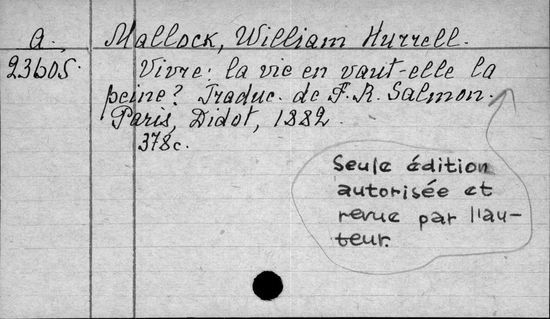 a. Mallock, William Hurrell.
23605. Vivre: la vie en vaut-elle la
peine? Traduc. de F. R. Salmon.
Paris, Didot, 1882.
378c.
Seule édition
autorisée et
revue par l'au-
teur.